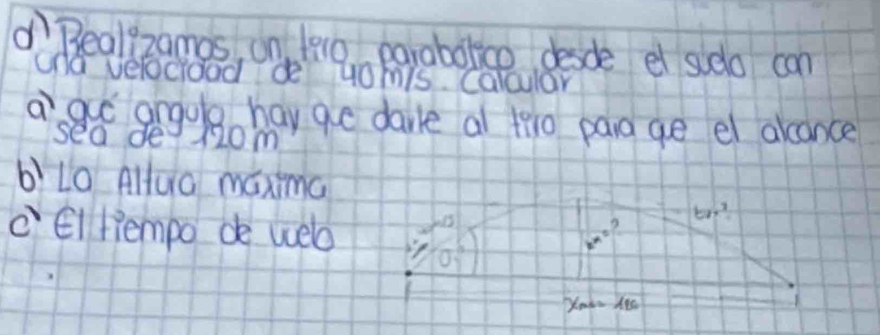 d) Realizamos un tiro parabolico desde el suelo con
una velocidad de 40m/s. Calcular
a) que angulo hay que darle al tiro para que el alcance
sea de 120m
b) La Altura maxima
c) El tiempo de vuelo